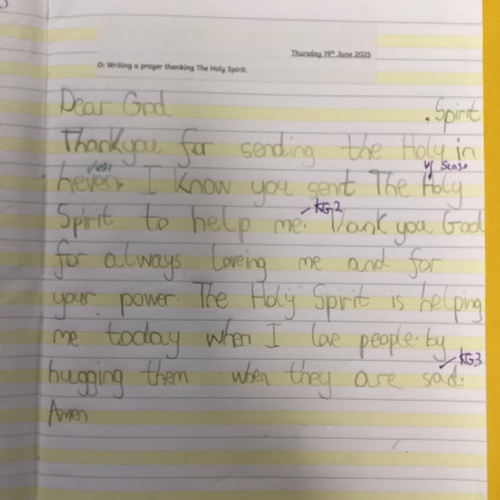 Thursday 19th June 2025
O: Writing a prayer thanking The Holy Spirit.
Dear God
. Spirit
Thankyou for sending the Holy in
heven. I know you sent The Holy
Sense
Spirit to help me. Thank you God
KG2
for always loveing me and for
your power. The Holy Spirit is helping
me today when I love people by
KG3
hugging them when they are sad.
Amen